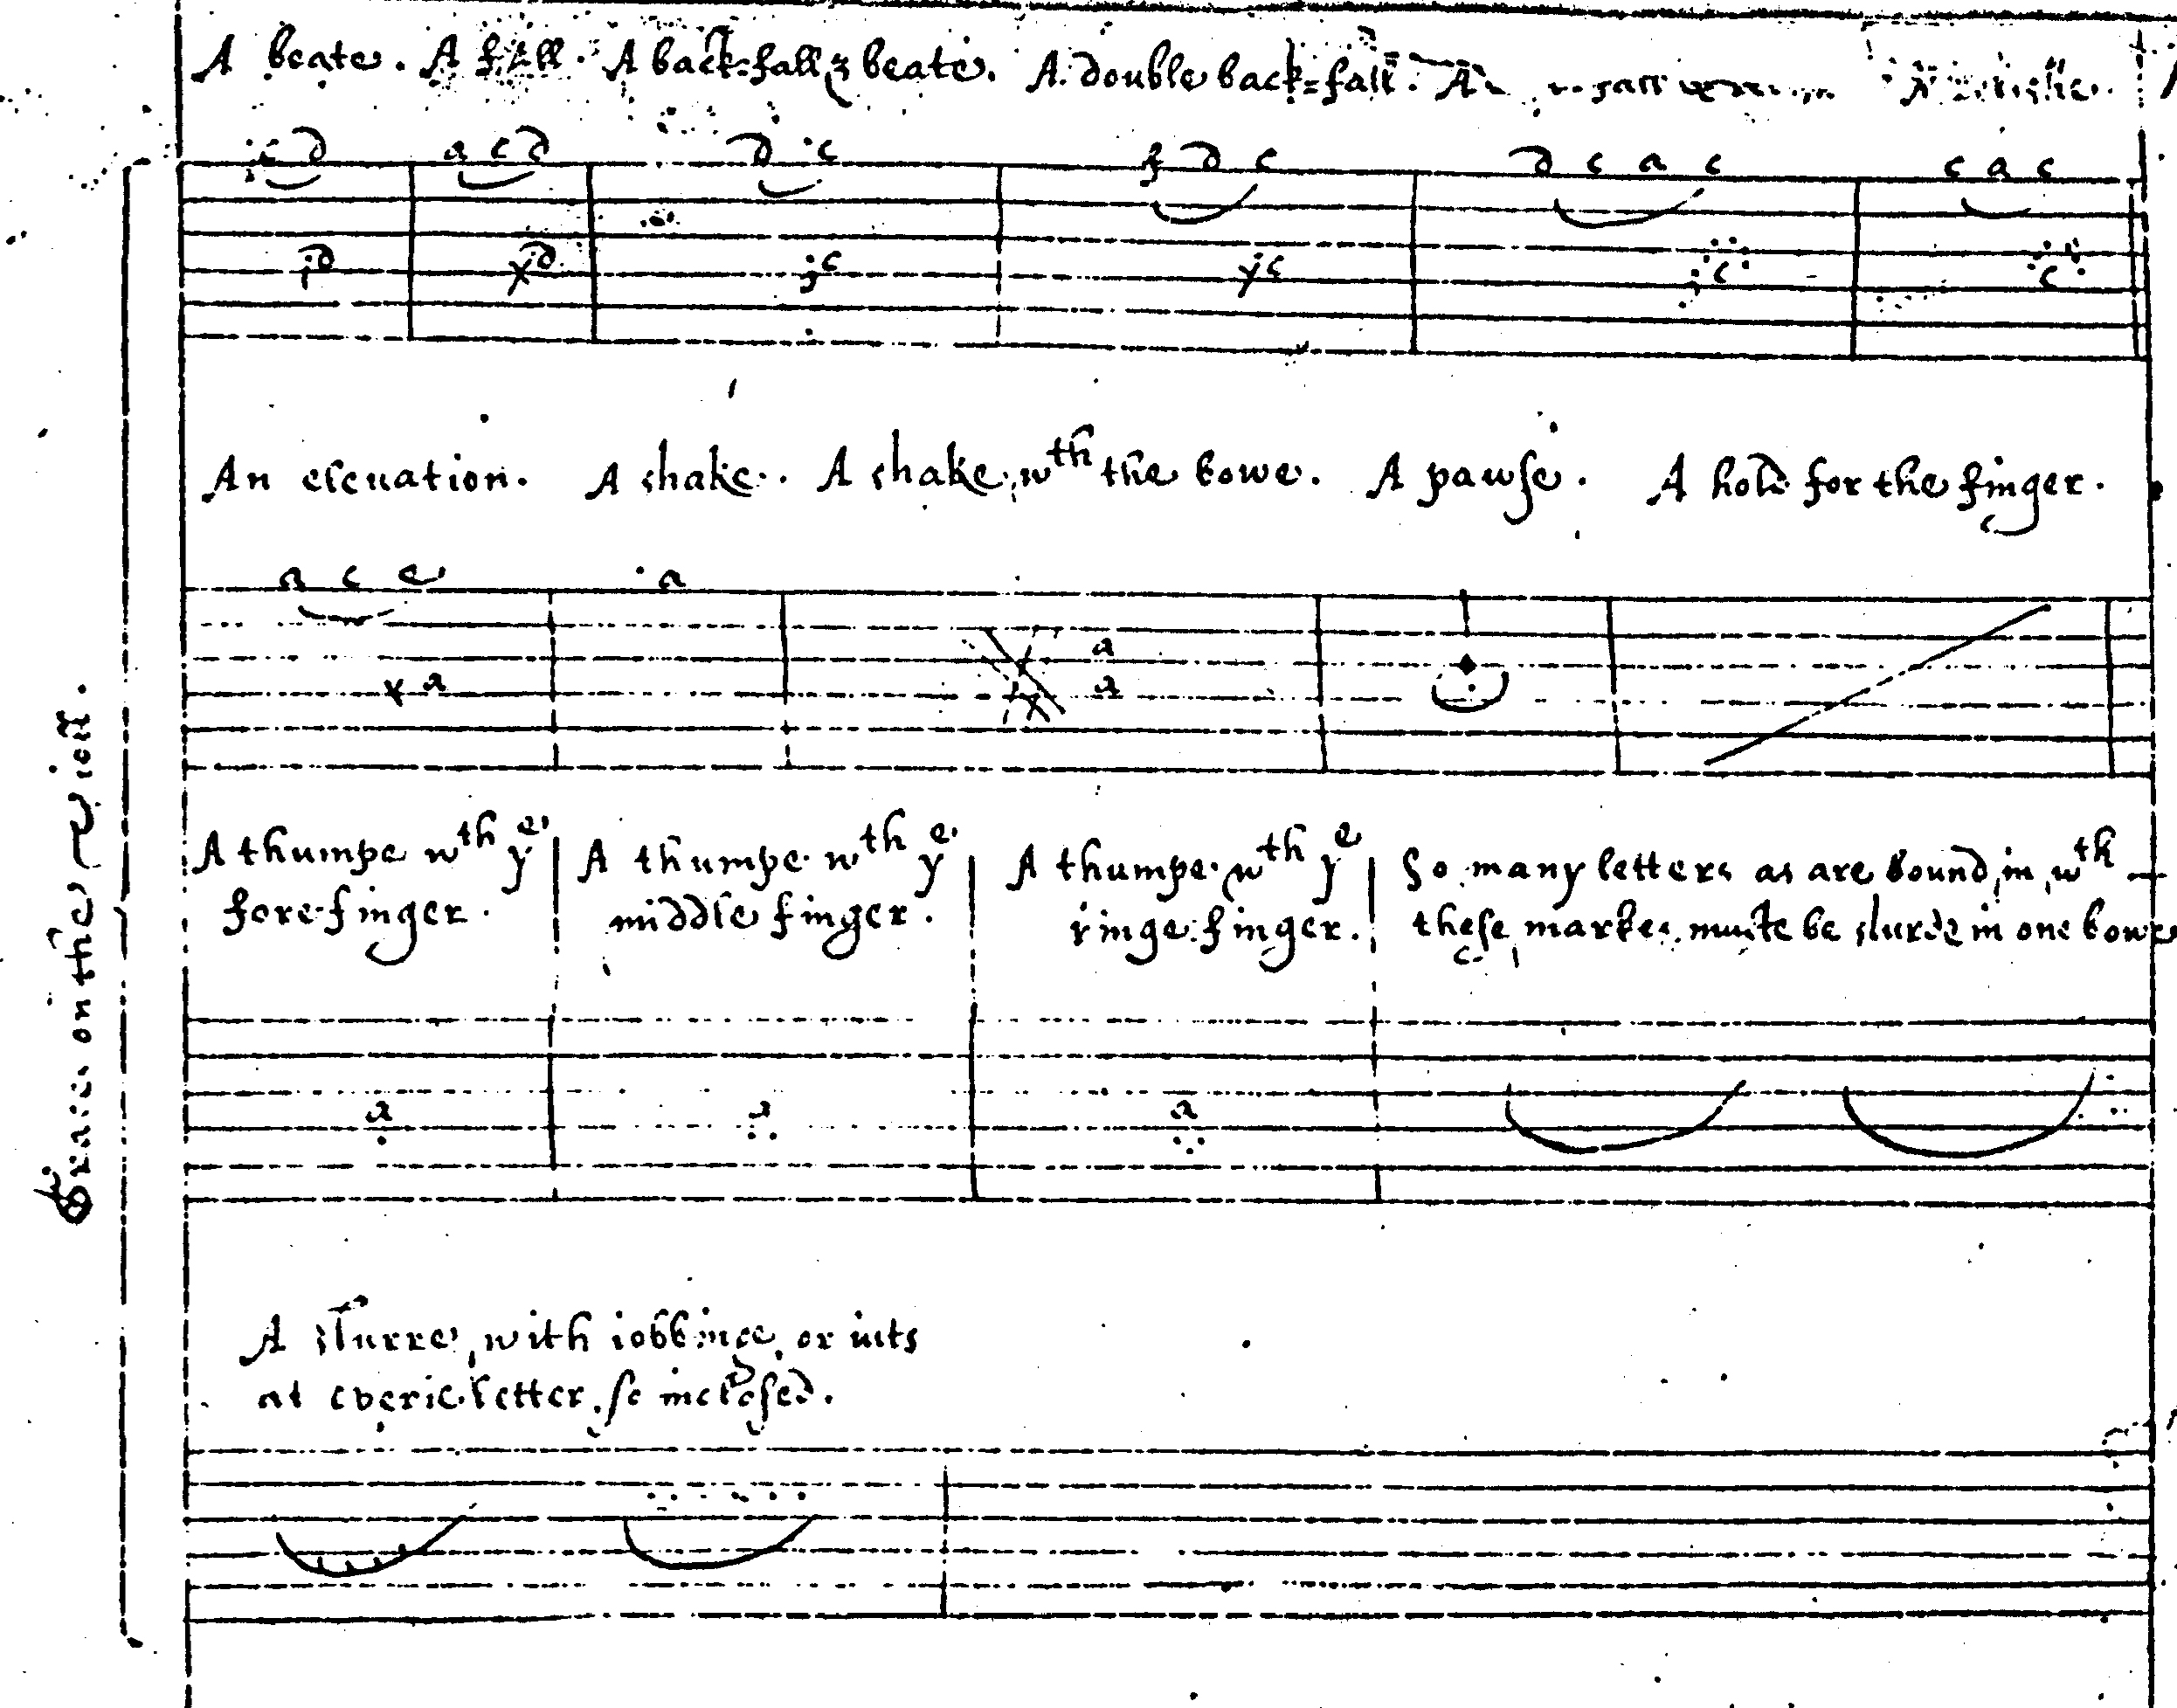 A beate. A fall. A back=fall & beate. A double back=fall. A
c d a c d d c f d c d c a c c a c
d d c c c c
An eleuation. A shake. A shake wth the bowe. A pawse. A hold for the finger.
a c e a
a a
a
Graces on the violl.
A thumpe wth ye A thumpe wth ye A thumpe wth ye So many letters as are bound in wth
fore-finger. middle finger. ringe finger. these markes muste be slurde in one bowe
a a a
A slurre with iobbinge, or iuts
at everie letter, so inclosed.